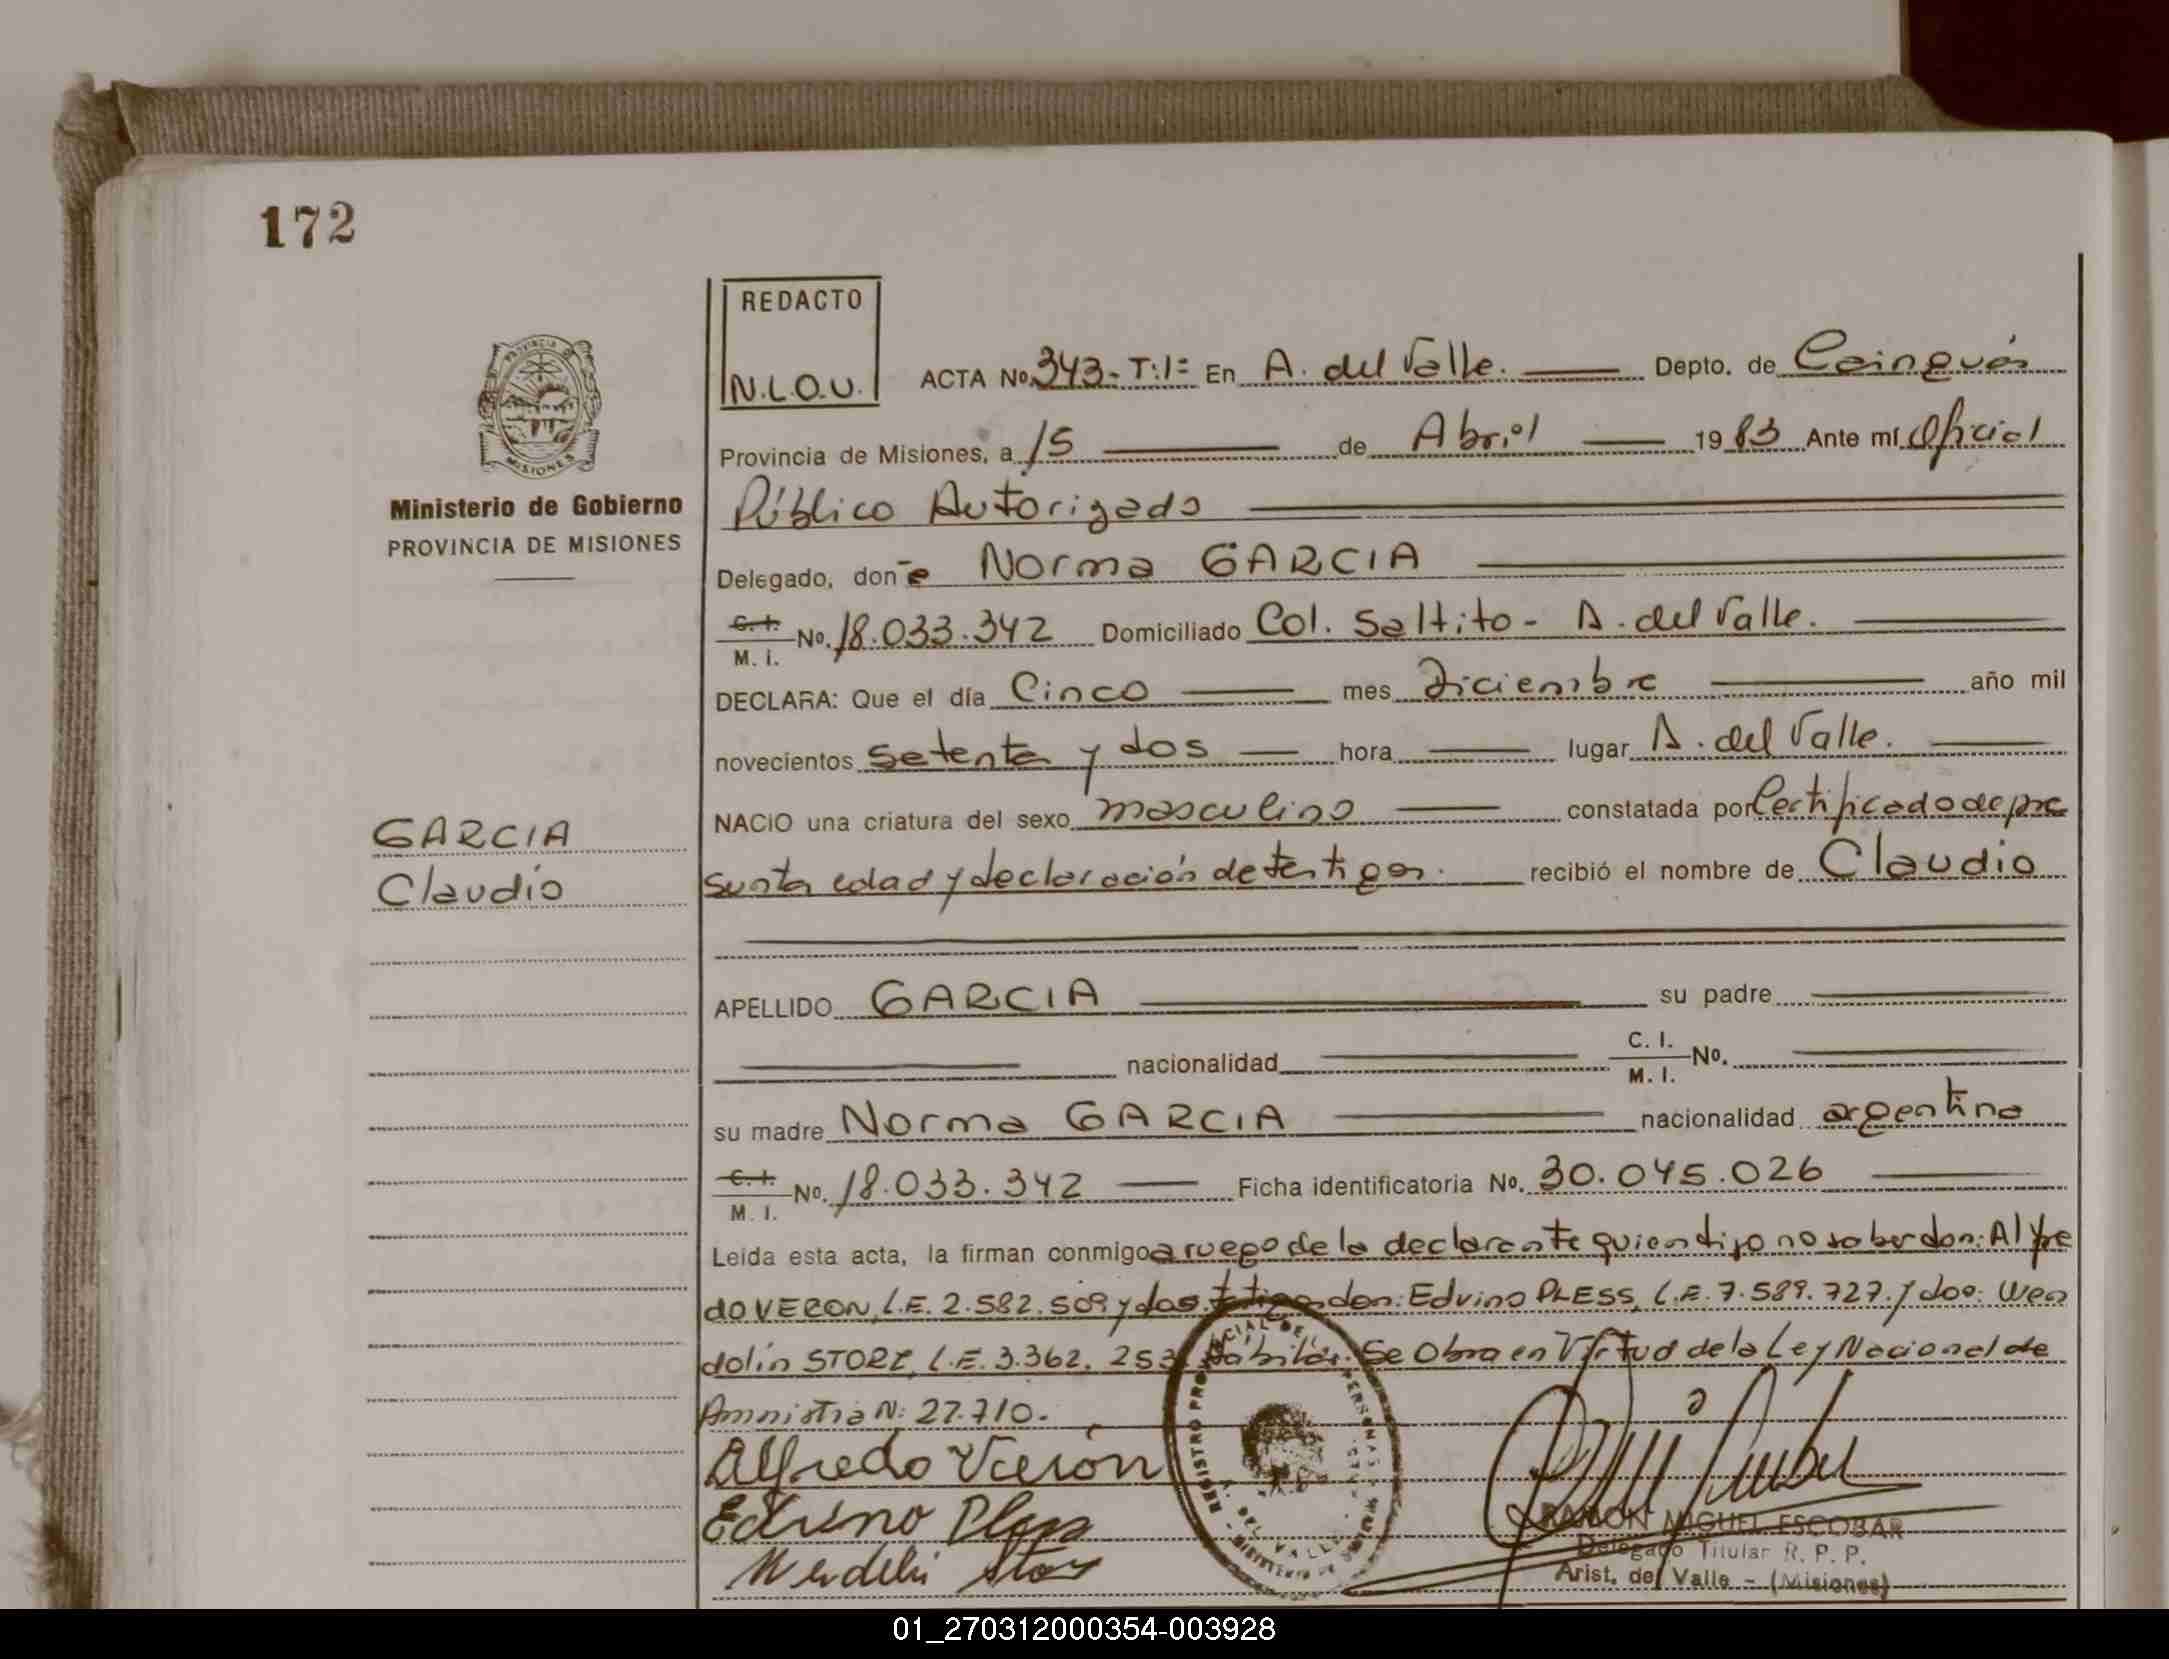 172
REDACTO
N.L.O.U.
PROVINCIA DE
MISIONES
Ministerio de Gobierno
PROVINCIA DE MISIONES
GARCIA
Claudio
ACTA No. 343 - T:1º En A. del Valle. Depto. de Cainguás
Provincia de Misiones, a 15 de Abril 1983 Ante mí Oficial
Público Autorizado
Delegado, don~e Norma GARCIA
C. I. M. I. No. 18.033.342 Domiciliado Col. Saltito - A. del Valle.
DECLARA: Que el día Cinco mes Diciembre año mil
novecientos setenta y dos hora lugar A. del Valle.
NACIO una criatura del sexo masculino constatada por Certificado de pre
sunta edad y declaración de testigos. recibió el nombre de Claudio
APELLIDO GARCIA su padre
nacionalidad C. I. M. I. No.
su madre Norma GARCIA nacionalidad argentina
C. I. M. I. No. 18.033.342 Ficha identificatoria No. 30.045.026
Leida esta acta, la firman conmigo a ruego de la declarante quien dijo no saber don: Alfre
do VERON, L.E. 2.582.509 y dos testigos don: Edvino PLESS, L.E. 7.589.727. y don: Wen
dolín L.E. 3.362.253 Hábiles. Se Obra en Virtud de la Ley Nacional de
Amnistia N: 22.710.
Alfredo Verón
Edvino Pless
REGISTRO PROVINCIAL DE PERSONAS
DEL VALLE
RAMON MIGUEL ESCOBAR
Delegado Titular R. P. P.
Arist. del Valle - (Misiones)
01_270312000354-003928